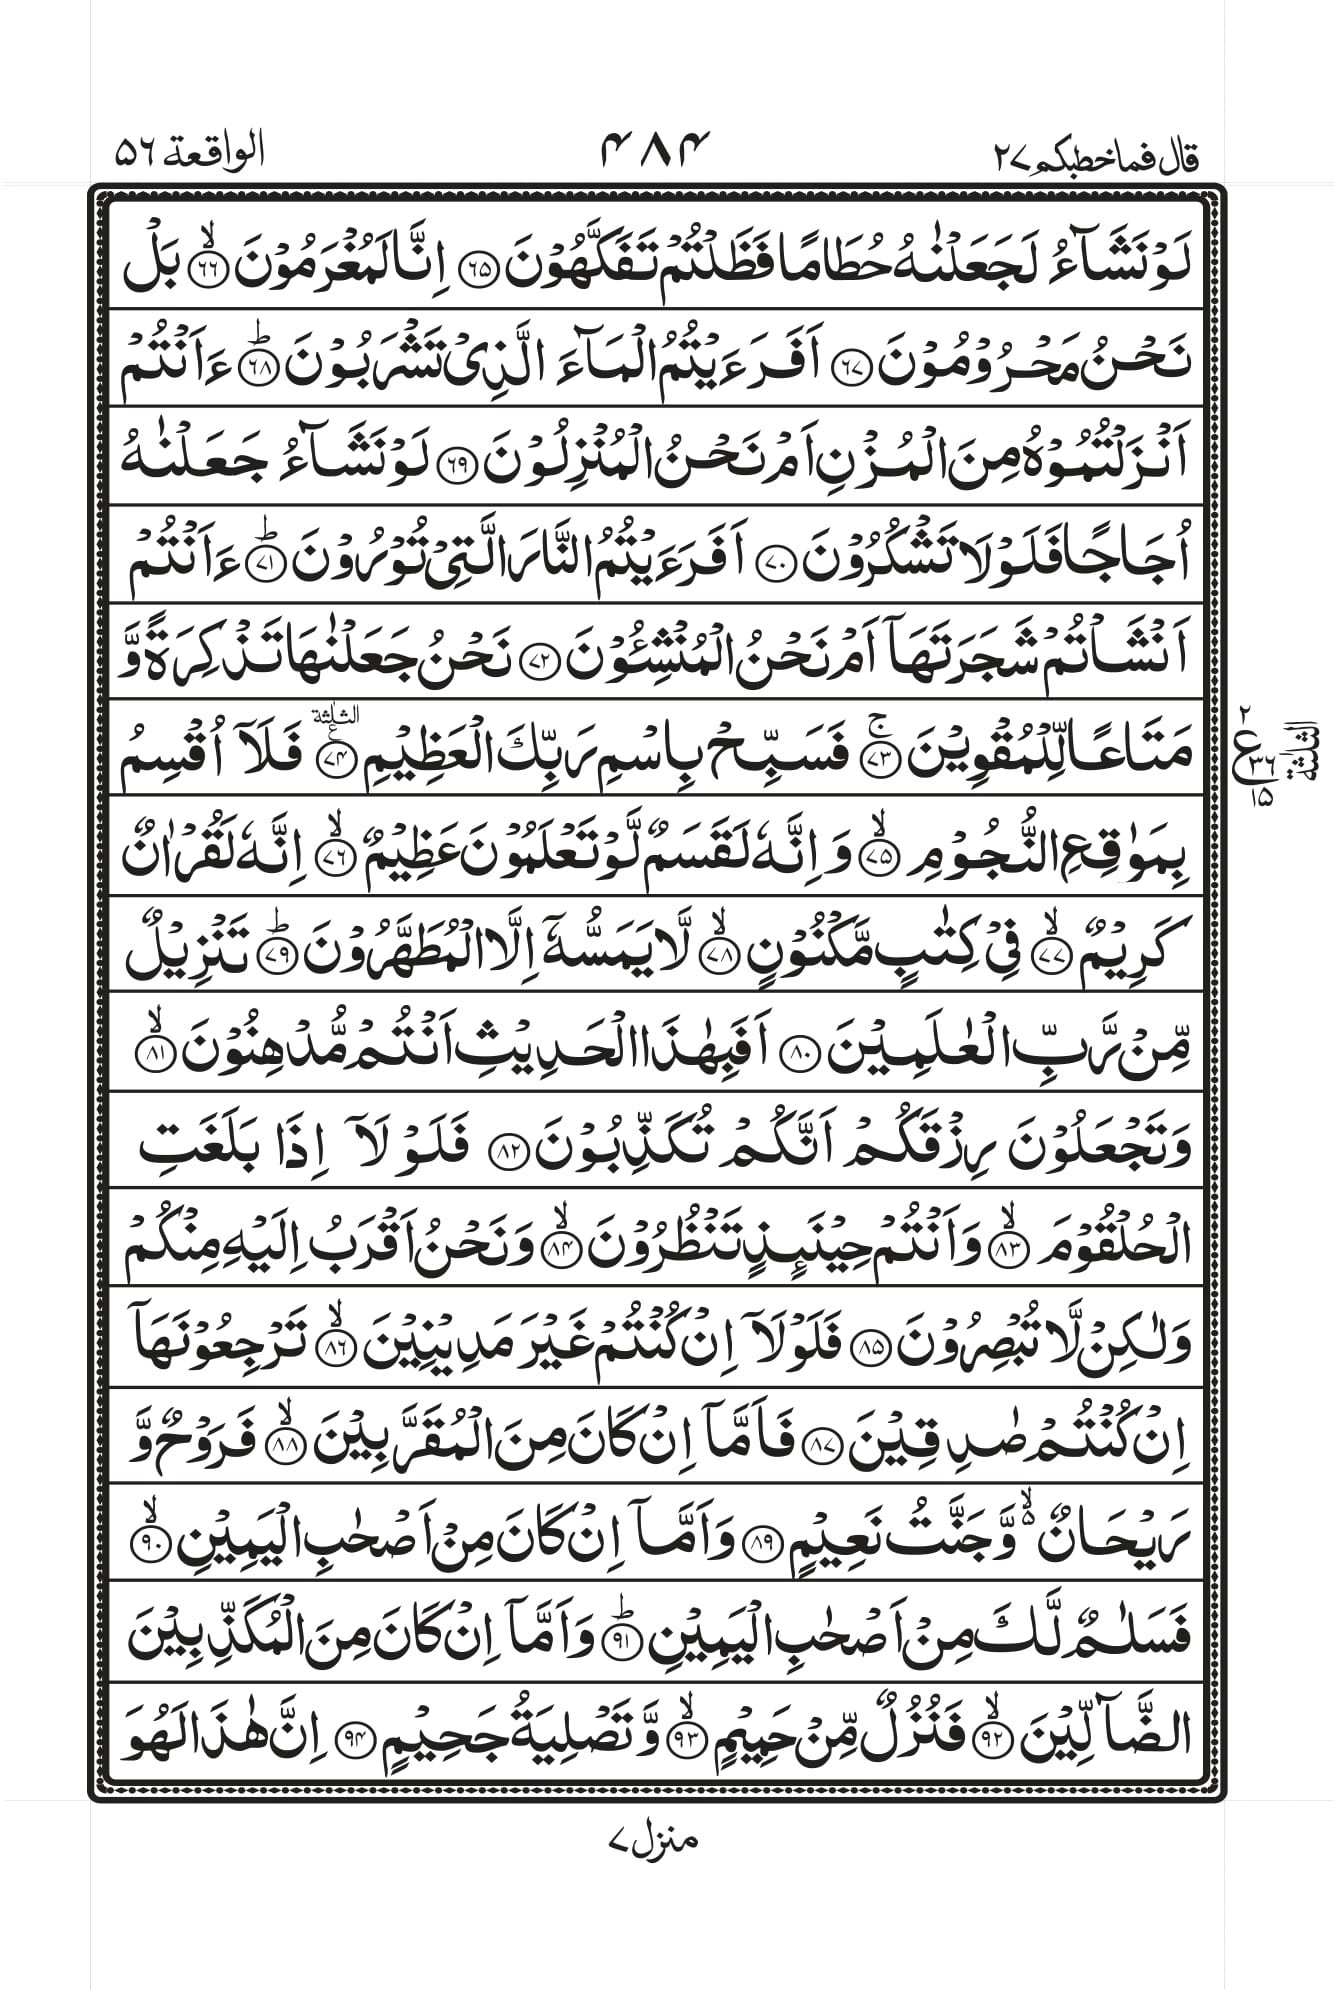 قال فما خطبكم ۲۷
۴۸۴
الواقعة ۵۶
لَوْ نَشَآءُ لَجَعَلْنٰهُ حُطَامًا فَظَلْتُمْ تَفَكَّهُوْنَ ﴿۶۵﴾ اِنَّا لَمُغْرَمُوْنَ ۙ﴿۶۶﴾ بَلْ
نَحْنُ مَحْرُوْمُوْنَ ﴿۶۷﴾ اَفَرَءَيْتُمُ الْمَآءَ الَّذِىْ تَشْرَبُوْنَ ؕ﴿۶۸﴾ ءَاَنْتُمْ
اَنْزَلْتُمُوْهُ مِنَ الْمُزْنِ اَمْ نَحْنُ الْمُنْزِلُوْنَ ﴿۶۹﴾ لَوْ نَشَآءُ جَعَلْنٰهُ
اُجَاجًا فَلَوْلَا تَشْكُرُوْنَ ﴿۷۰﴾ اَفَرَءَيْتُمُ النَّارَ الَّتِىْ تُوْرُوْنَ ؕ﴿۷۱﴾ ءَاَنْتُمْ
اَنْشَاْتُمْ شَجَرَتَهَآ اَمْ نَحْنُ الْمُنْشِـُٔوْنَ ﴿۷۲﴾ نَحْنُ جَعَلْنٰهَا تَذْكِرَةً وَّ
مَتَاعًا لِّلْمُقْوِيْنَ ۚ﴿۷۳﴾ فَسَبِّحْ بِاسْمِ رَبِّكَ الْعَظِيْمِ ﴿۷۴﴾ الثلثة ع فَلَآ اُقْسِمُ
۲
ع
۳۶
۱۵
الثلثة
بِمَوٰقِعِ النُّجُوْمِ ۙ﴿۷۵﴾ وَاِنَّهٗ لَقَسَمٌ لَّوْ تَعْلَمُوْنَ عَظِيْمٌ ۙ﴿۷۶﴾ اِنَّهٗ لَقُرْاٰنٌ
كَرِيْمٌ ۙ﴿۷۷﴾ فِىْ كِتٰبٍ مَّكْنُوْنٍ ۙ﴿۷۸﴾ لَّا يَمَسُّهٗٓ اِلَّا الْمُطَهَّرُوْنَ ؕ﴿۷۹﴾ تَنْزِيْلٌ
مِّنْ رَّبِّ الْعٰلَمِيْنَ ﴿۸۰﴾ اَفَبِهٰذَا الْحَدِيْثِ اَنْتُمْ مُّدْهِنُوْنَ ۙ﴿۸۱﴾
وَتَجْعَلُوْنَ رِزْقَكُمْ اَنَّكُمْ تُكَذِّبُوْنَ ﴿۸۲﴾ فَلَوْلَآ اِذَا بَلَغَتِ
الْحُلْقُوْمَ ۙ﴿۸۳﴾ وَاَنْتُمْ حِيْنَىِٕذٍ تَنْظُرُوْنَ ۙ﴿۸۴﴾ وَنَحْنُ اَقْرَبُ اِلَيْهِ مِنْكُمْ
وَلٰكِنْ لَّا تُبْصِرُوْنَ ﴿۸۵﴾ فَلَوْلَآ اِنْ كُنْتُمْ غَيْرَ مَدِيْنِيْنَ ۙ﴿۸۶﴾ تَرْجِعُوْنَهَآ
اِنْ كُنْتُمْ صٰدِقِيْنَ ﴿۸۷﴾ فَاَمَّآ اِنْ كَانَ مِنَ الْمُقَرَّبِيْنَ ۙ﴿۸۸﴾ فَرَوْحٌ وَّ
رَيْحَانٌ ۙ۵ وَّجَنَّتُ نَعِيْمٍ ﴿۸۹﴾ وَاَمَّآ اِنْ كَانَ مِنْ اَصْحٰبِ الْيَمِيْنِ ۙ﴿۹۰﴾
فَسَلٰمٌ لَّكَ مِنْ اَصْحٰبِ الْيَمِيْنِ ؕ﴿۹۱﴾ وَاَمَّآ اِنْ كَانَ مِنَ الْمُكَذِّبِيْنَ
الضَّآلِّيْنَ ۙ﴿۹۲﴾ فَنُزُلٌ مِّنْ حَمِيْمٍ ۙ﴿۹۳﴾ وَّتَصْلِيَةُ جَحِيْمٍ ﴿۹۴﴾ اِنَّ هٰذَا لَهُوَ
منزل ۷